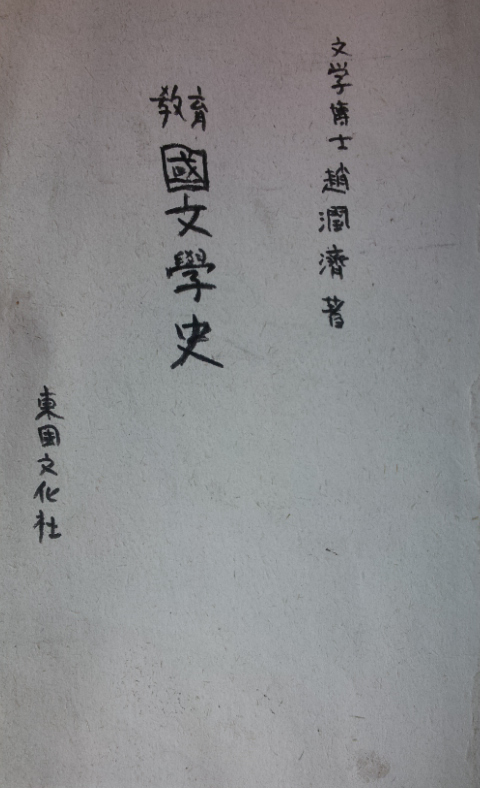 文学博士趙潤濟著
教育
國文學史
東国文化社